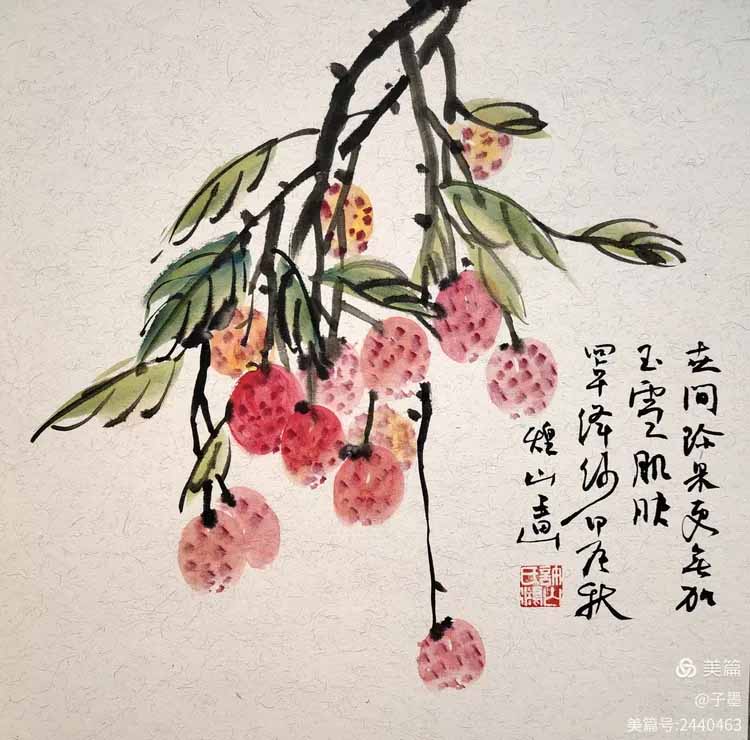 世间珍果更無加
玉雪肌肤
罩绛纱甲辰秋
煌山画
美篇
@子墨
美篇号:2440463